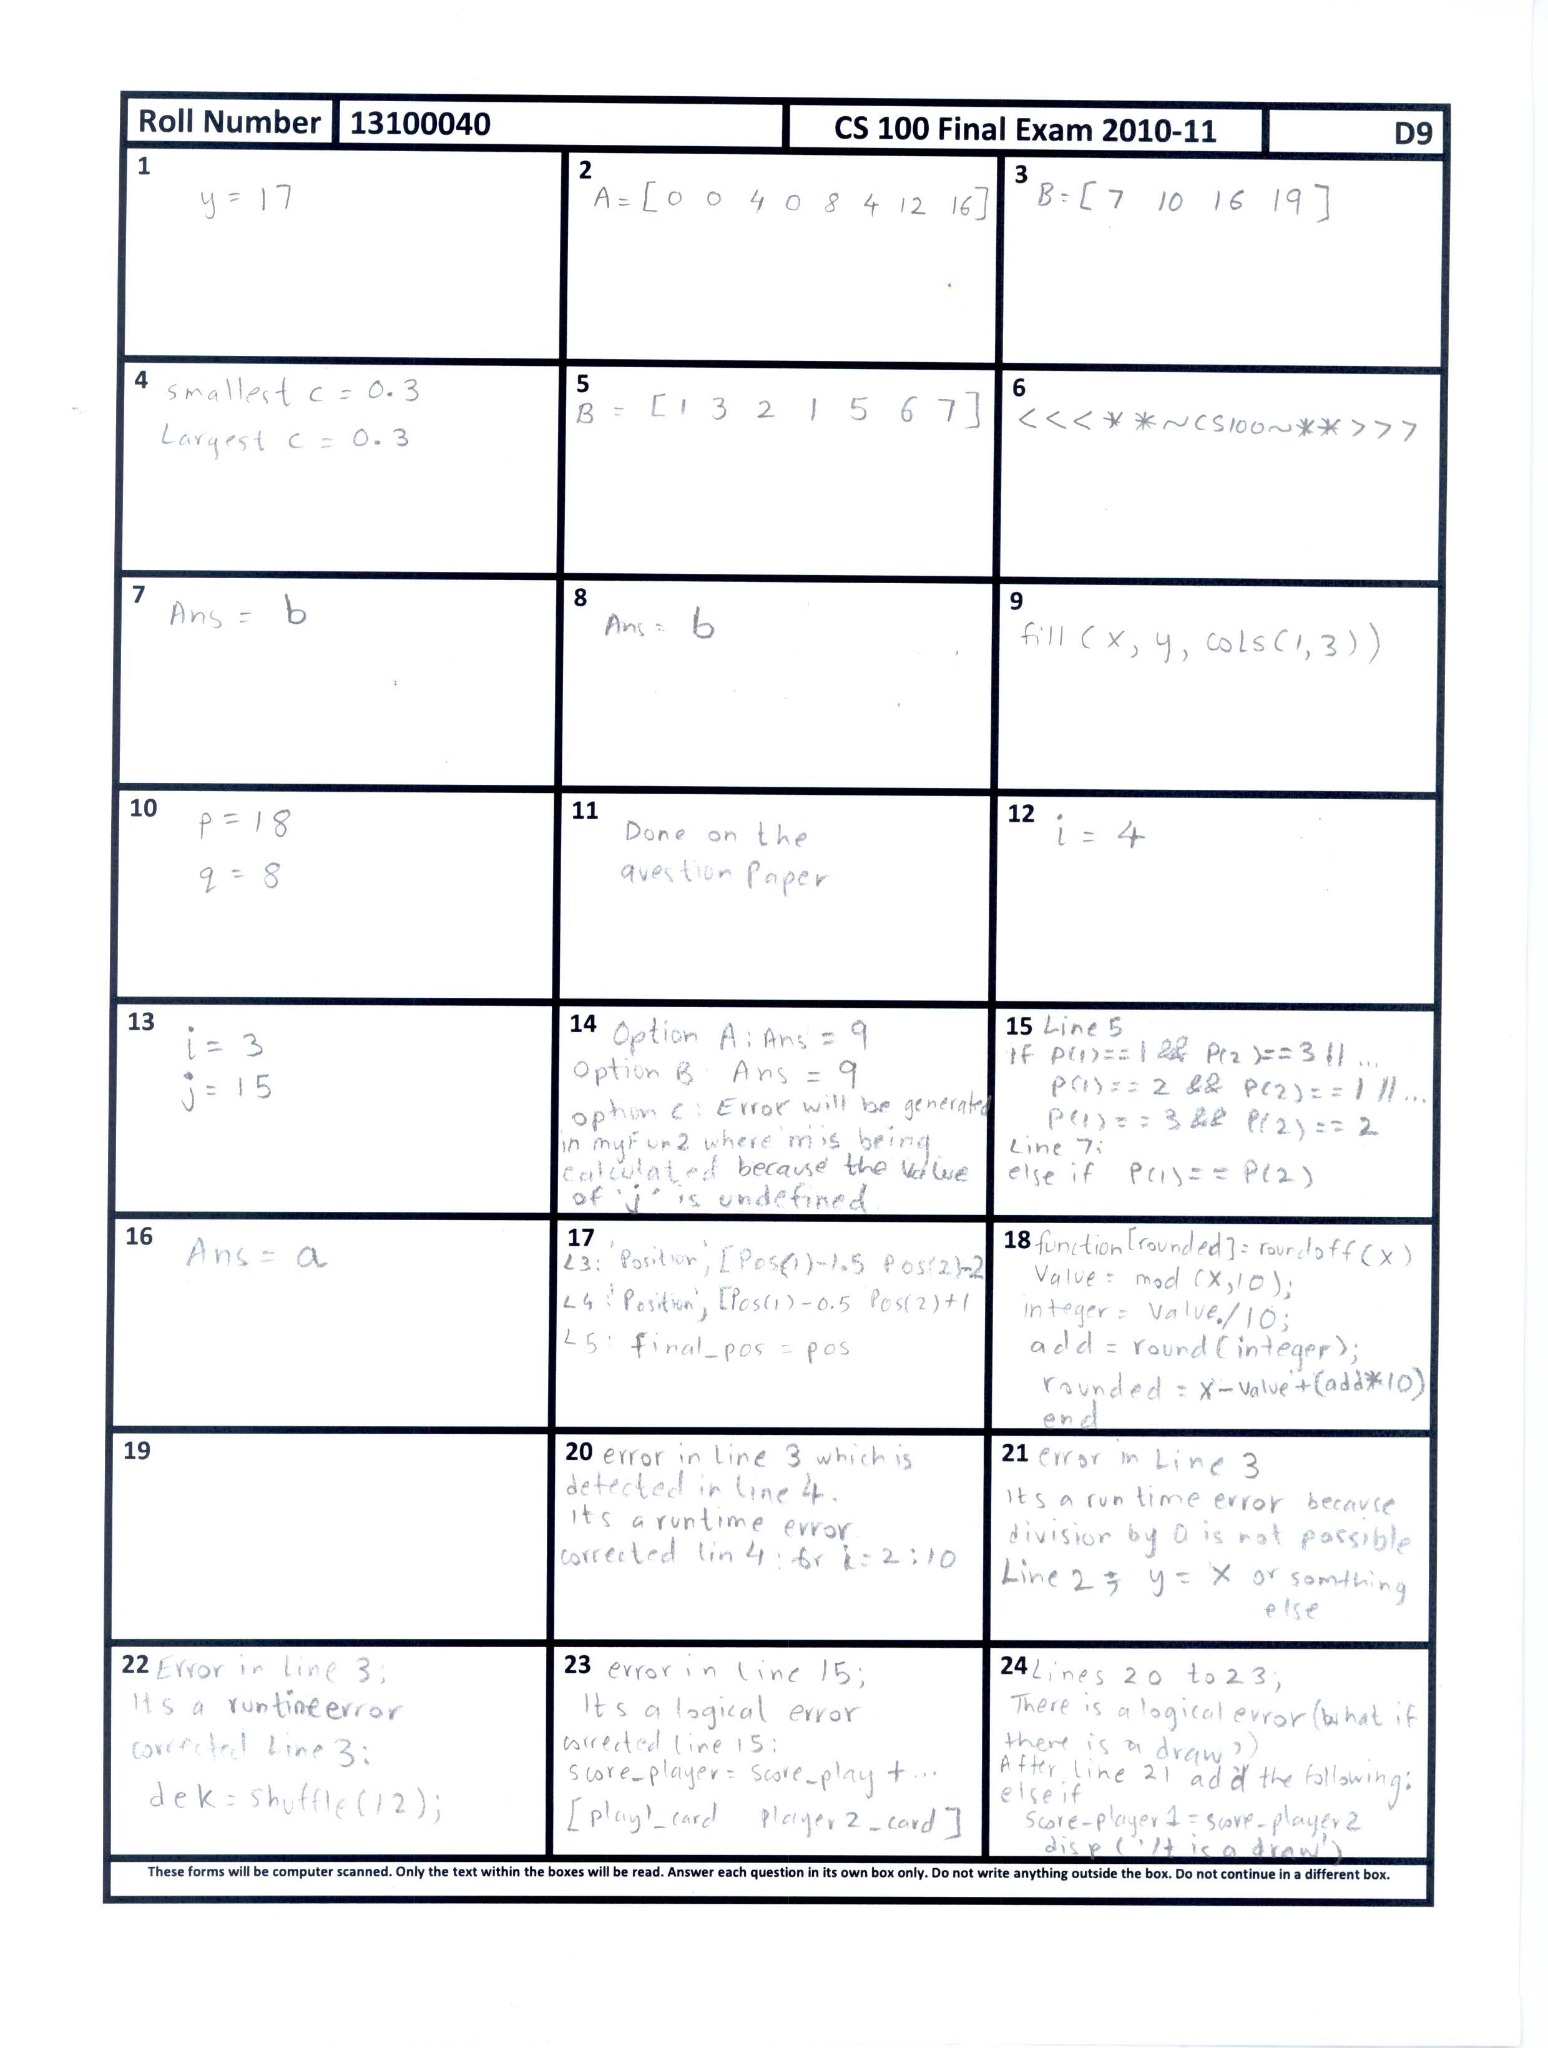 Roll Number 13100040 CS 100 Final Exam 2010-11 D9
1
y = 17
2
A = [ 0 0 4 0 8 4 12 16]
3
B = [ 7 10 16 19 ]
4 smallest c = 0.3
Largest c = 0.3
5
B = [ 1 3 2 1 5 6 7 ]
6
<<<**~CS100~**>>>
7
Ans = b
8
Ans = b
9
fill (x, y, cols(1,3))
10
p = 18
q = 8
11
Done on the
question Paper
12
i = 4
13
i = 3
j = 15
14 Option A: Ans = 9
Option B Ans = 9
option C: Error will be generated
in myFun2 where 'm' is being
calculated because the value
of 'j' is undefined
15 Line 5
if P(1)==1 && P(2)==3 || ...
P(1)==2 && P(2)==1 || ...
P(1)==3 && P(2)==2
Line 7:
else if P(1)==P(2)
16
Ans = a
17
L3: 'Position', [Pos(1)-1.5 Pos(2)-2
L4: 'Position', [Pos(1)-0.5 Pos(2)+1
L5: final_pos = pos
18 function [rounded] = roundoff (x)
Value = mod (x,10);
integer = Value./10;
add = round (integer);
rounded = x-value+(add*10)
end
19
20 error in line 3 which is
detected in line 4.
its a runtime error
corrected lin 4: for i=2:10
21 error in Line 3
its a run time error because
division by 0 is not possible
Line 2; y = x or somthing
else
22 Error in line 3;
its a runtime error
corrected Line 3:
dek = shuffle(12);
23 error in line 15;
It's a logical error
corrected line 15:
score_player = score_play + ...
[play1_card player2_card]
24 Lines 20 to 23;
There is a logical error (what if
there is a draw?)
After line 21 add the following:
elseif
score-player1 = score-player2
disp ('It is a draw')
These forms will be computer scanned. Only the text within the boxes will be read. Answer each question in its own box only. Do not write anything outside the box. Do not continue in a different box.